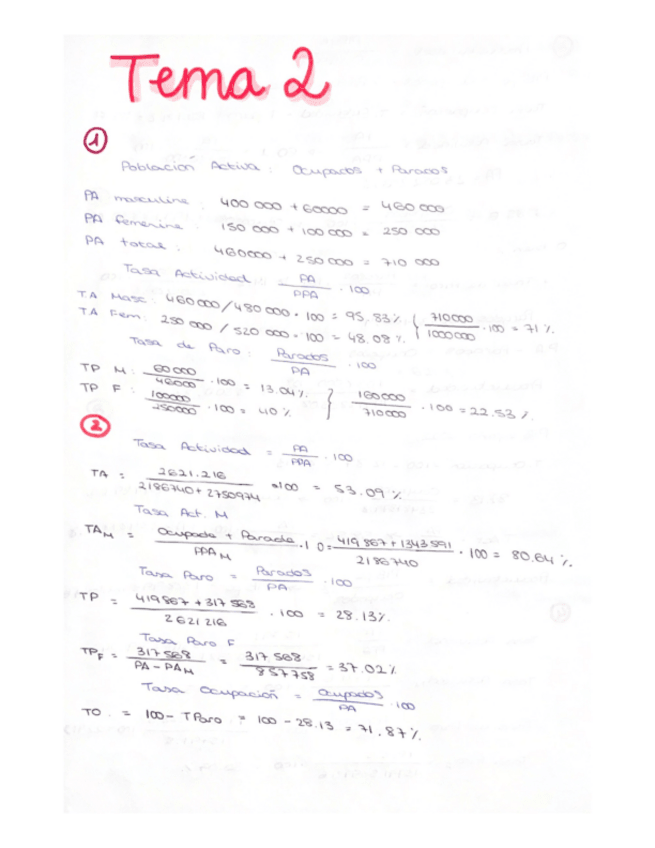 Tema 2
1
Población Activa : Ocupados + Parados
PA masculina : 400 000 + 60000 = 460 000
PA femenina : 150 000 + 100 000 = 250 000
PA total : 460000 + 250 000 = 710 000
Tasa Actividad = PA / PPA · 100
TA Masc : 460 000 / 480 000 · 100 = 95,83 % { 710000 / 1000000 · 100 = 71 %.
TA Fem : 250 000 / 520 000 · 100 = 48,08 %
Tasa de Paro : Parados / PA · 100
TP M : 60 000 / 46000 · 100 = 13.04 %. } 160000 / 710000 · 100 = 22.53 %
TP F : 100000 / 250000 · 100 = 40 %
2
Tasa Actividad = PA / PPA · 100
TA = 2621.216 / 2186740 + 2750974 · 100 = 53.09 %
Tasa Act. M
TAM = Ocupada + Parada / PPAM · 1 0 = 419 867 + 1343 591 / 2186740 · 100 = 80,64 %.
Tasa Paro = Parados / PA · 100
TP = 419867 + 317 568 / 2621216 · 100 = 28.13%.
Tasa Paro F
TPF = 317 568 / PA - PAM = 317 568 / 857758 = 37.02 %
Tasa Ocupación = Ocupados / PA · 100
TO . = 100 - TParo = 100 - 28.13 = 71,87 %.